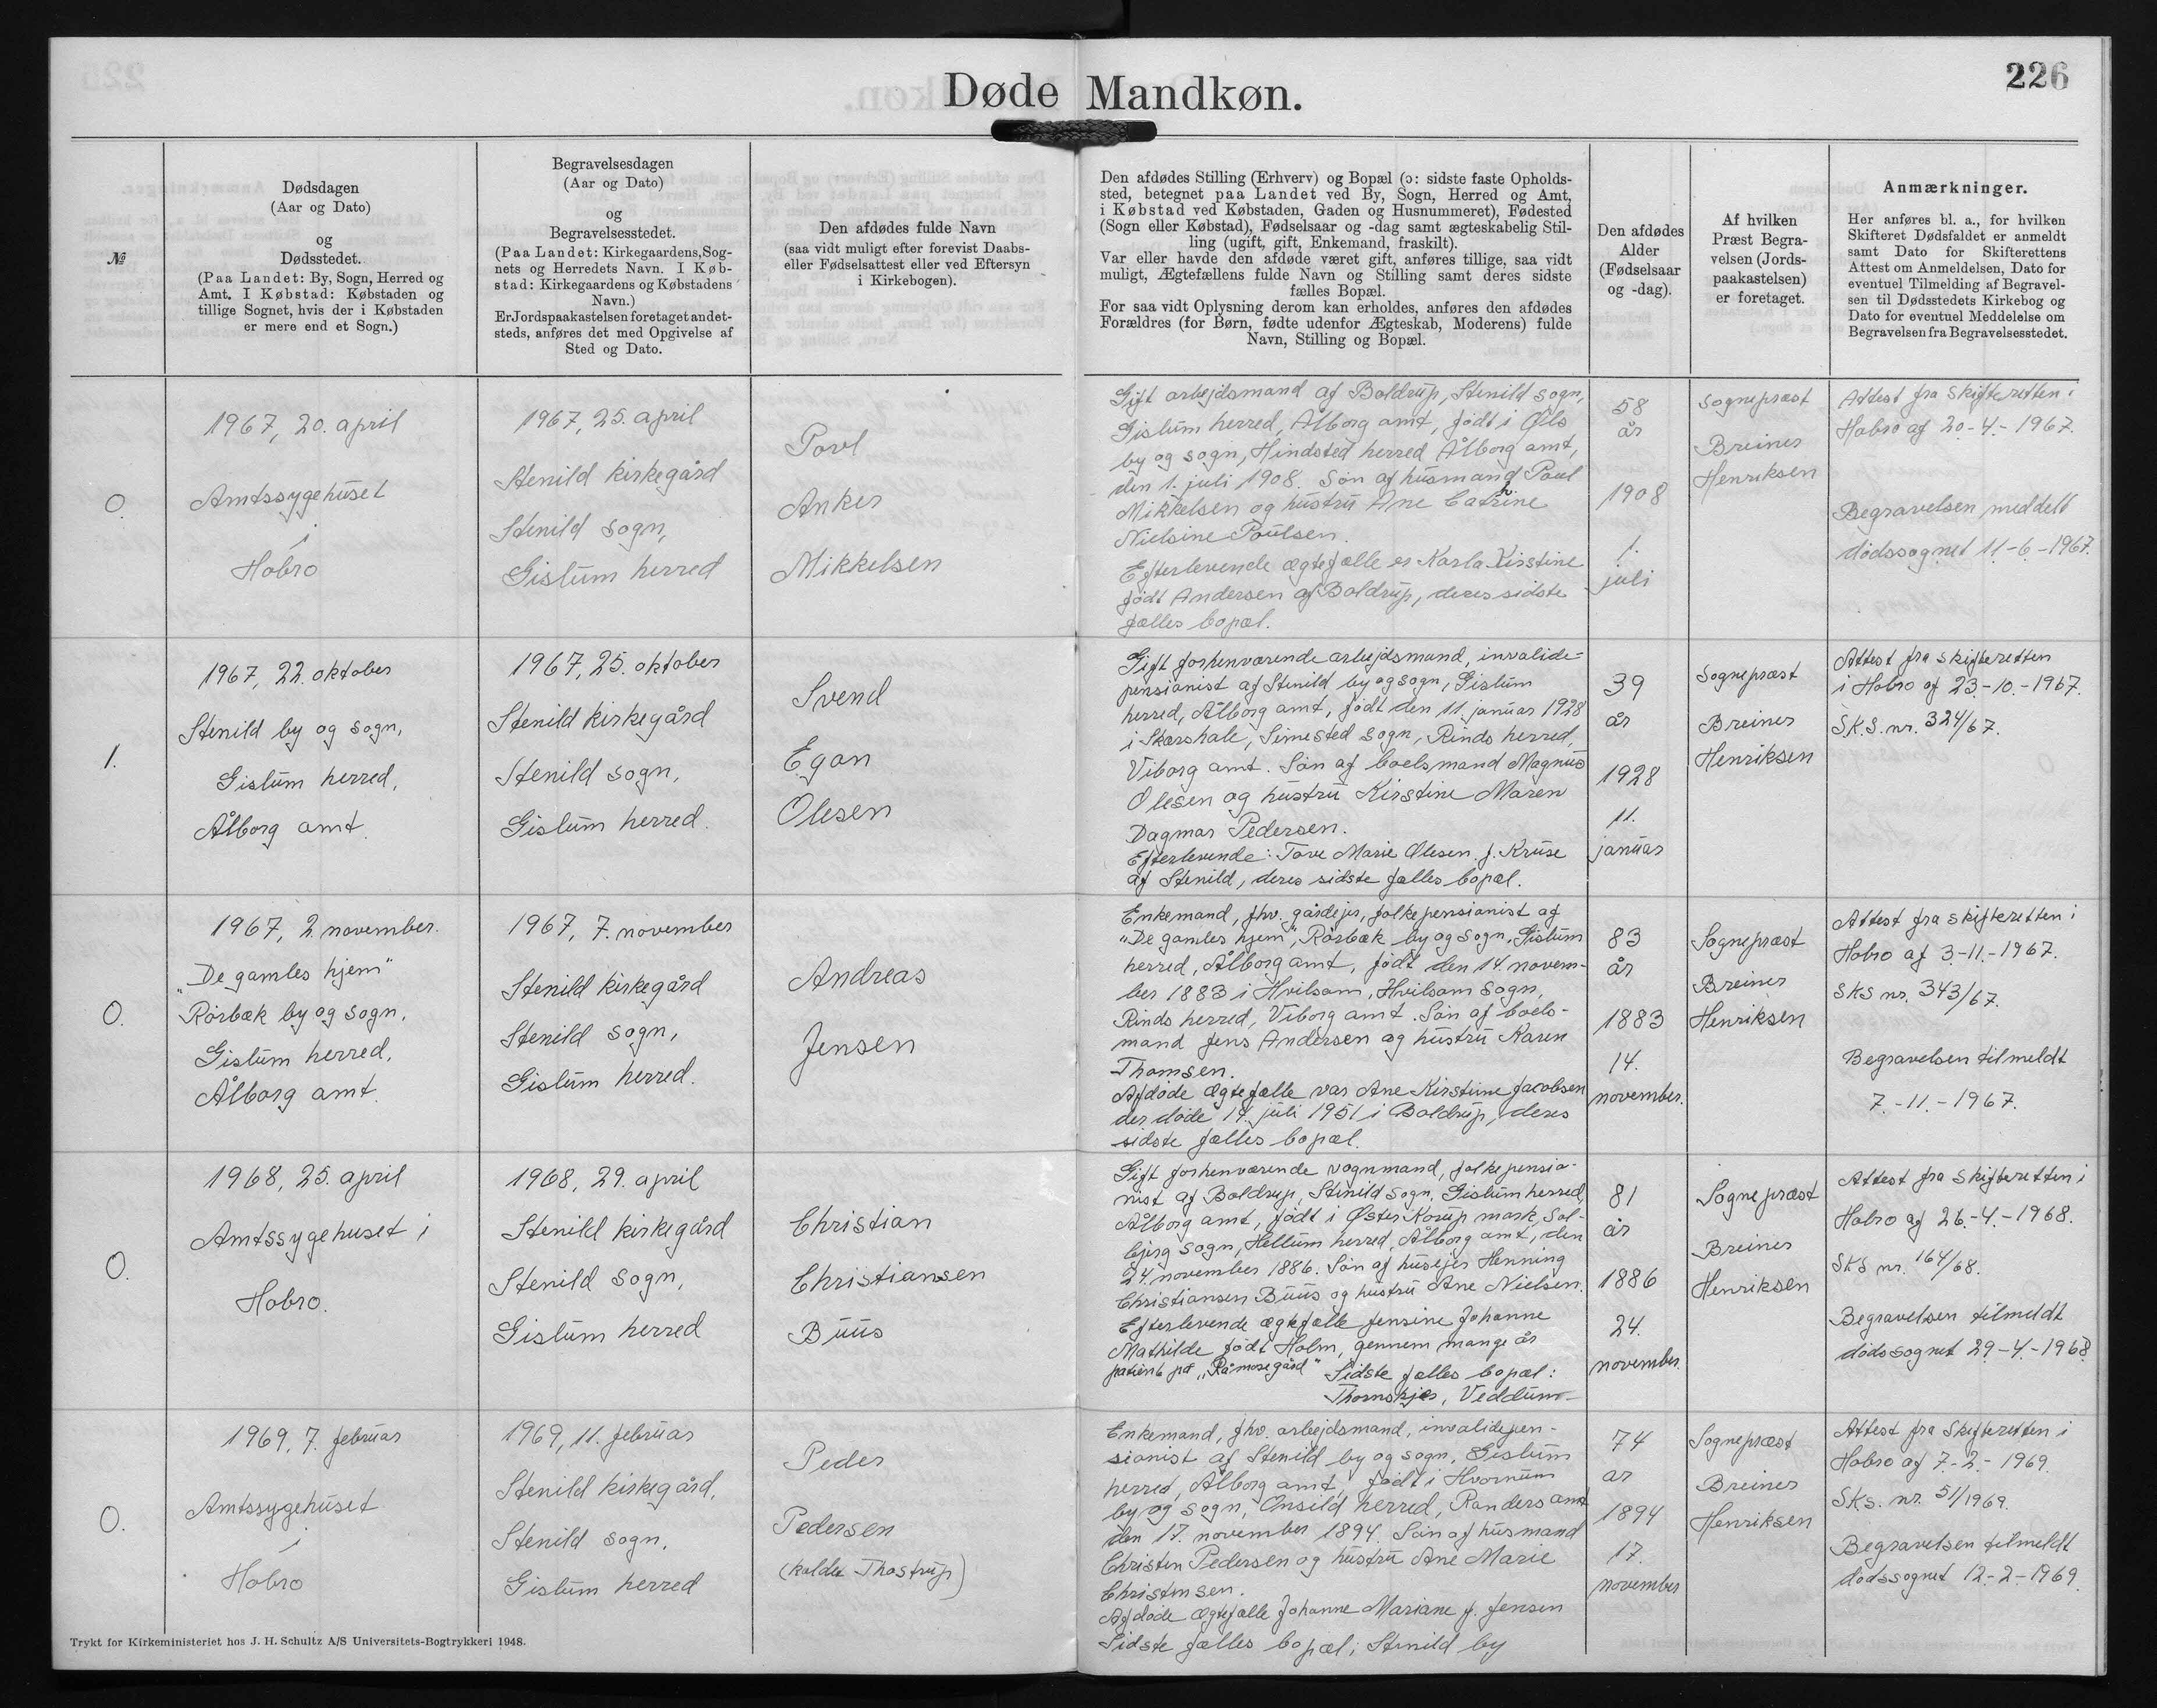 Døde Mandkøn.
226
№
Dødsdagen
(Aar og Dato)
og
Dødsstedet.
(Paa Landet: By, Sogn, Herred og
Amt. I Købstad: Købstaden og
tillige Sognet, hvis der i Købstaden
er mere end et Sogn.)
Begravelsesdagen
(Aar og Dato)
og
Begravelsesstedet.
(Paa Landet: Kirkegaardens, Sog-
nets og Herredets Navn. I Køb-
stad: Kirkegaardens og Købstadens
Navn.)
Er Jordspaakastelsen foretaget andet-
steds, anføres det med Opgivelse af
Sted og Dato.
Den afdødes fulde Navn
(saa vidt muligt efter forevist Daabs-
eller Fødselsattest eller ved Eftersyn
i Kirkebogen).
Den afdødes Stilling (Erhverv) og Bopæl (ɔ: sidste faste Opholds-
sted, betegnet paa Landet ved By, Sogn, Herred og Amt,
i Købstad ved Købstaden, Gaden og Husnummeret), Fødested
(Sogn eller Købstad), Fødselsaar og -dag samt ægteskabelig Stil-
ling (ugift, gift, Enkemand, fraskilt).
Var eller havde den afdøde været gift, anføres tillige, saa vidt
muligt, Ægtefællens fulde Navn og Stilling samt deres sidste
fælles Bopæl.
For saa vidt Oplysning derom kan erholdes, anføres den afdødes
Forældres (for Børn, fødte udenfor Ægteskab, Moderens) fulde
Navn, Stilling og Bopæl.
Den afdødes
Alder
(Fødselsaar
og -dag).
Af hvilken
Præst Begra-
velsen (Jords-
paakastelsen)
er foretaget.
Anmærkninger.
Her anføres bl. a., for hvilken
Skifteret Dødsfaldet er anmeldt
samt Dato for Skifterettens
Attest om Anmeldelsen, Dato for
eventuel Tilmelding af Begravel-
sen til Dødsstedets Kirkebog og
Dato for eventuel Meddelelse om
Begravelsen fra Begravelsesstedet.
0
1967, 20. april
Amtssygehuset
i
Hobro
1967, 25. april
Stenild kirkegård
Stenild sogn,
Gislum herred
Povl
Anker
Mikkelsen
Gift arbejdsmand af Boldrup, Stenild sogn,
Gislum herred, Ålborg amt, født i Øls
by og sogn, Hindsted herred Ålborg amt,
den 1. juli 1908. Søn af husmand Poul
Mikkelsen og hustru Ane Catrine
Nielsine Poulsen.
Efterlevende ægtefælle er Karla Kirstine
født Andersen af Boldrup, deres sidste
fælles bopæl.
58
år
1908
1.
juli
Sognepræst
Breiner
Henriksen
Attest fra skifteretten i
Hobro af 20-4-1967.
Begravelsen meddelt
dødssognet 11-6-1967.
1.
1967, 22. oktober
Stenild by og sogn,
Gislum herred,
Ålborg amt.
1967, 25. oktober
Stenild kirkegård
Stenild sogn,
Gislum herred.
Svend
Egon
Olesen
Gift forhenværende arbejdsmand, invalide-
pensionist af Stenild by og sogn, Gislum
herred, Ålborg amt, født den 11. januar 1928
i Skarshale, Simested sogn, Rinds herred,
Viborg amt. Søn af boelsmand Magnus
Olesen og hustru Kirstine Maren
Dagmar Pedersen.
Efterlevende: Tove Marie Olesen f. Kruse
af Stenild, deres sidste fælles bopæl.
39
år
1928
11.
januar
Sognepræst
Breiner
Henriksen
Attest fra skifteretten
i Hobro af 23-10-1967.
S.K.S. nr. 324/67.
0.
1967, 2 november.
"De gamles hjem"
Rørbæk by og sogn,
Gislum herred,
Ålborg amt.
1967, 7. november
Stenild kirkegård
Stenild sogn,
Gislum herred.
Andreas
Jensen
Enkemand, fhv. gårdejer, folkepensionist af
"De gamles hjem", Rørbæk by og sogn, Gislum
herred, Ålborg amt, født den 14. novem-
ber 1883 i Hvilsom, Hvilsom sogn,
Rinds herred, Viborg amt. Søn af boels-
mand Jens Andersen og hustru Karen
Thomsen.
Afdøde ægtefælle var Ane Kirstine Jacobsen
der døde 14. juli 1951 i Boldrup, deres
sidste fælles bopæl.
83
år
1883
14.
november.
Sognepræst
Breiner
Henriksen
Attest fra skifteretten i
Hobro af 3-11-1967.
SKS nr. 343/67.
Begravelsen tilmeldt
7.-11.-1967.
0.
1968, 25. april
Amtssygehuset i
Hobro.
1968, 29. april
Stenild kirkegård
Stenild sogn,
Gislum herred
Christian
Christiansen
Buus
Gift forhenværende vognmand, folkepensio-
nist af Boldrup, Stenild sogn, Gislum herred,
Ålborg amt, født i Øster Korup mark, Sol-
bjerg sogn, Hellum herred, Ålborg amt, den
24. november 1886. Søn af husejer Henning
Christiansen Buus og hustru Ane Nielsen.
Efterlevende ægtefælle Jensine Johanne
Mathilde født Holm, gennem mange år
patient på "Råmosegård" Sidste fælles bopæl:
Thornskjer, Veddum
81
år
1886
24.
november.
Sognepræst
Breiner
Henriksen
Attest fra skifteretten i
Hobro af 26.-4.-1968.
SKS nr. 164/68.
Begravelsen tilmeldt
dødssognet 29-4-1968
0.
1969, 7. februar
Amtssygehuset
i
Hobro
1969, 11. februar
Stenild kirkegård,
Stenild sogn,
Gislum herred
Peder
Pedersen
(kaldet Thostrup)
Enkemand, fhv. arbejdsmand, invalidepen-
sionist af Stenild by og sogn, Gislum
herred, Ålborg amt, født i Hvornum
by og sogn, Onsild herred, Randers amt
den 17. november 1894. Søn af husmand
Christen Pedersen og hustru Ane Marie
Christensen.
Afdøde ægtefælle Johanne Mariane f. Jensen
Sidste fælles bopæl; Stenild by
74
år
1894
17.
november
Sognepræst
Breiner
Henriksen
Attest fra Skifteretten i
Hobro af 7.-2.-1969.
SKS. nr. 51/1969.
Begravelsen tilmeldt
dødssognet 12-2-1969.
Trykt for Kirkeministeriet hos J. H. Schultz A/S Universitets-Bogtrykkeri 1948.